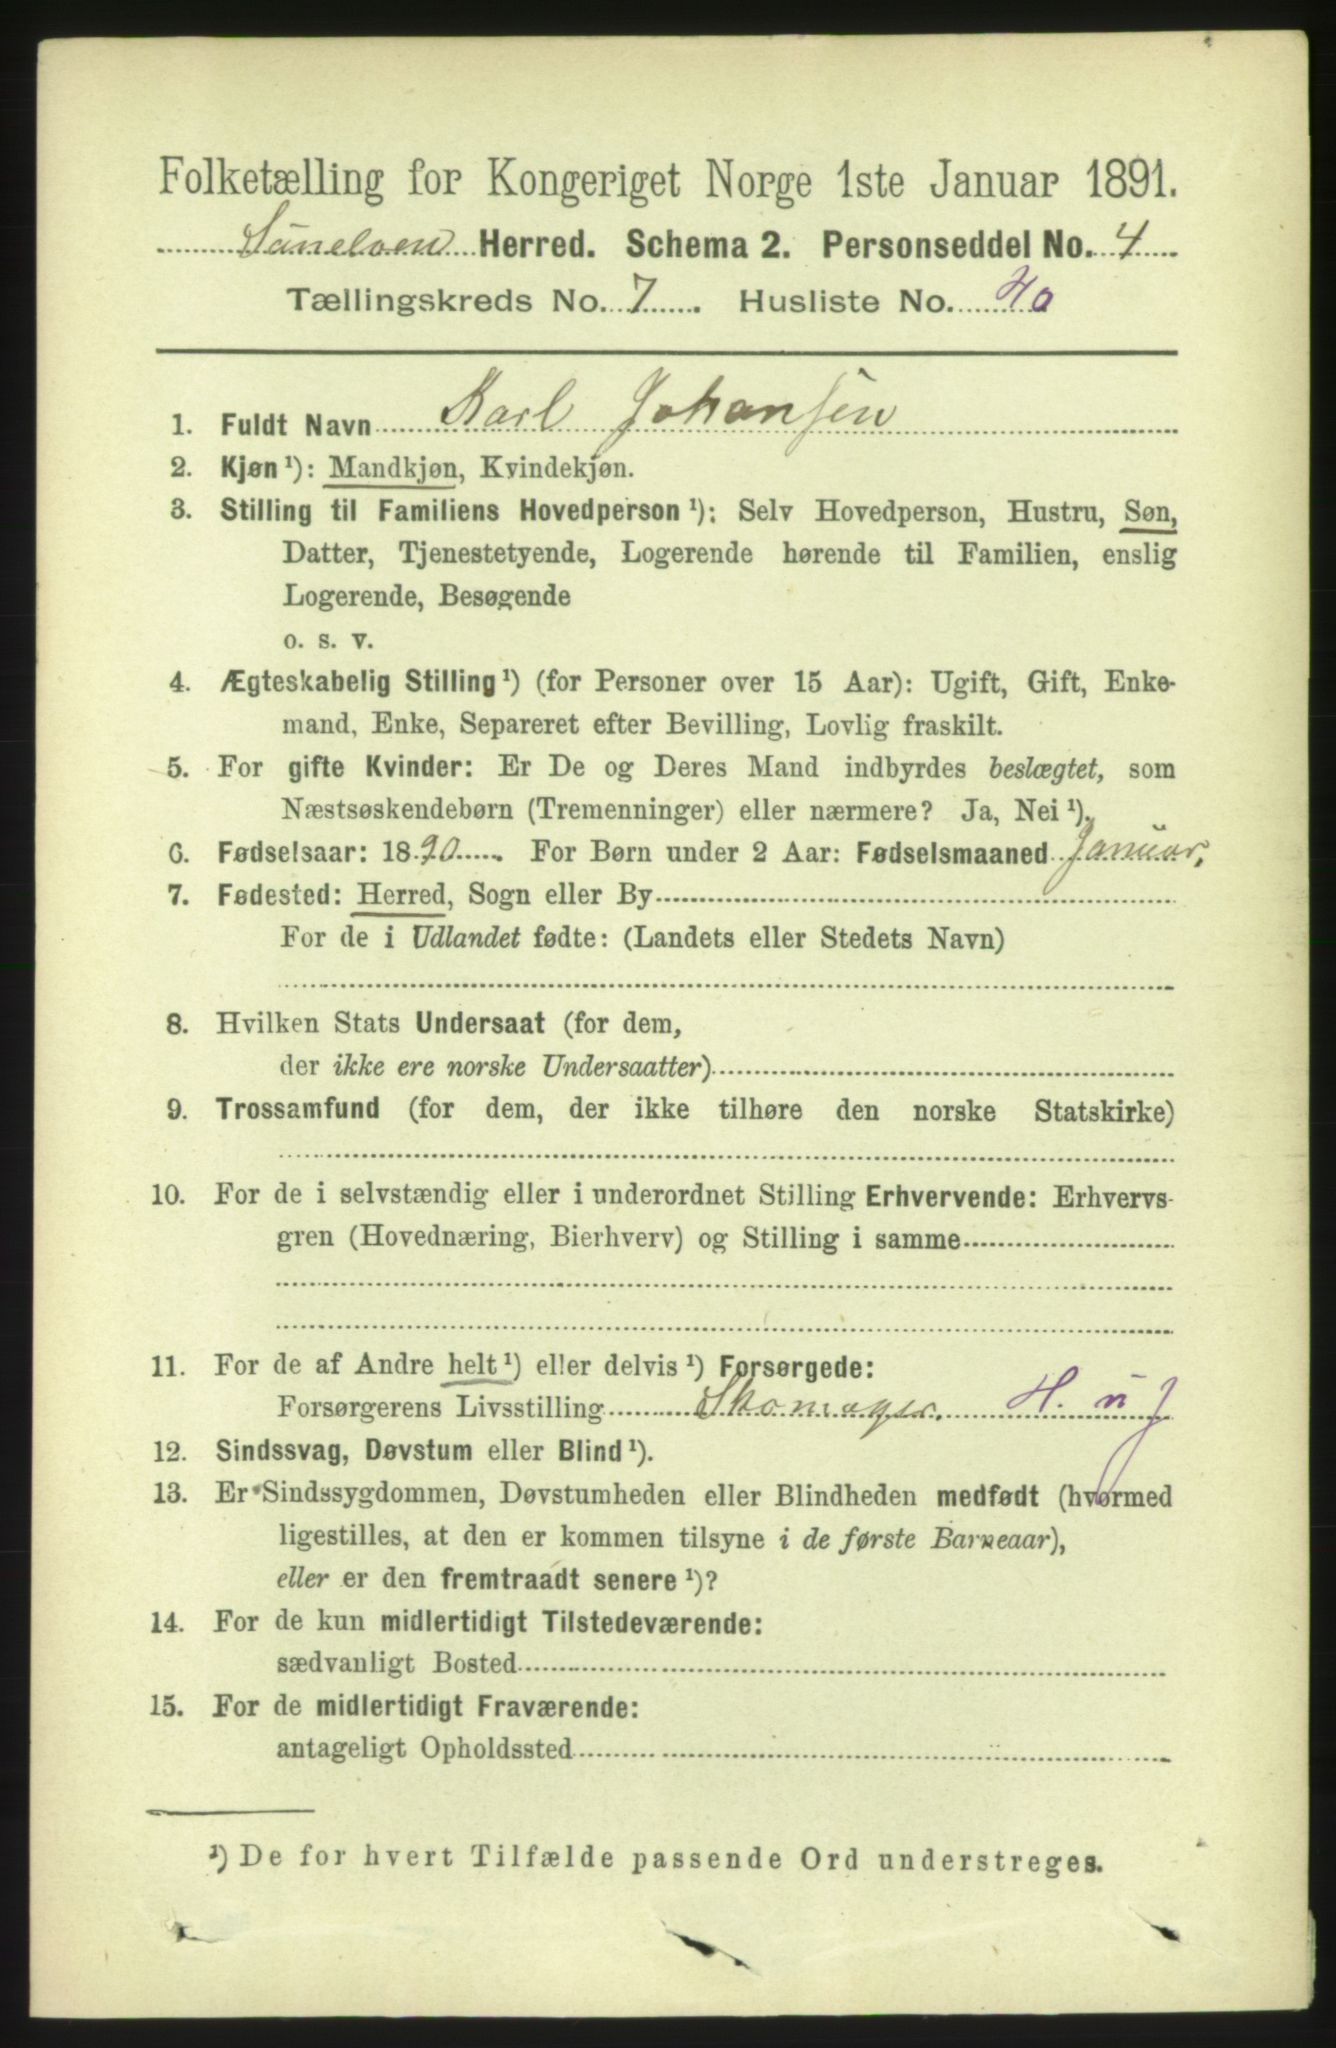 Folketælling for Kongeriget Norge 1ste Januar 1891.
Sunelven Herred. Schema 2. Personseddel No. 4
Tællingskreds No. 7. Husliste No. 40
1. Fuldt Navn Karl Johansen
2. Kjøn ¹): Mandkjøn, Kvindekjøn.
3. Stilling til Familiens Hovedperson ¹): Selv Hovedperson, Hustru, Søn,
Datter, Tjenestetyende, Logerende hørende til Familien, enslig
Logerende, Besøgende
o. s. v.
4. Ægteskabelig Stilling ¹) (for Personer over 15 Aar): Ugift, Gift, Enke-
mand, Enke, Separeret efter Bevilling, Lovlig fraskilt.
5. For gifte Kvinder: Er De og Deres Mand indbyrdes beslægtet, som
Næstsøskendebørn (Tremenninger) eller nærmere? Ja, Nei ¹).
6. Fødselsaar: 1890. For Børn under 2 Aar: Fødselsmaaned Januar,
7. Fødested: Herred, Sogn eller By
For de i Udlandet fødte: (Landets eller Stedets Navn)
8. Hvilken Stats Undersaat (for dem,
der ikke ere norske Undersaatter)
9. Trossamfund (for dem, der ikke tilhøre den norske Statskirke)
10. For de i selvstændig eller i underordnet Stilling Erhvervende: Erhvervs-
gren (Hovednæring, Bierhverv) og Stilling i samme
11. For de af Andre helt ¹) eller delvis ¹) Forsørgede:
Forsørgerens Livsstilling Skomager. H. u J
12. Sindssvag, Døvstum eller Blind ¹).
13. Er Sindssygdommen, Døvstumheden eller Blindheden medfødt (hvormed
ligestilles, at den er kommen tilsyne i de første Barneaar),
eller er den fremtraadt senere ¹)?
14. For de kun midlertidigt Tilstedeværende:
sædvanligt Bosted
15. For de midlertidigt Fraværende:
antageligt Opholdssted
¹) De for hvert Tilfælde passende Ord understreges.